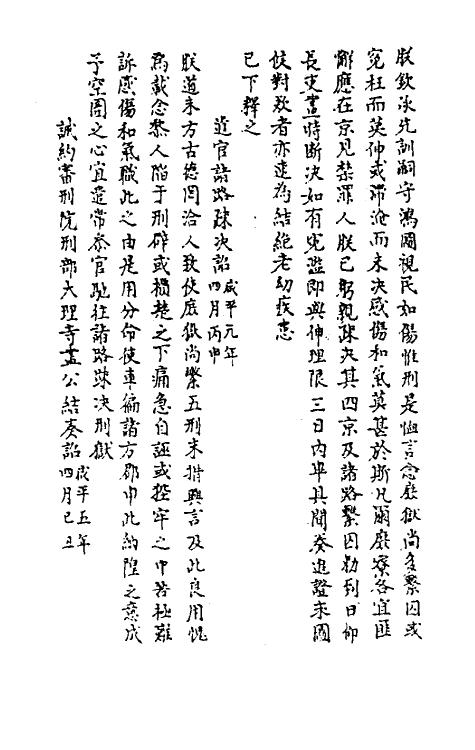 朕欽承先訓嗣守鴻圖視民如傷惟刑是恤言念庶獄尚多繫囚或
冤枉而莫伸或滯淹而未決感傷和氣莫甚於斯凡爾庶寮各宜匪
懈應在京見禁罪人朕已躬親疎決其四京及諸路繫囚勑到日仰
長吏晝時斷決如有冤濫即與伸理限三日內畢具聞奏追證未圓
伎對欵者亦速為結絶老幼疾患
已下釋之
遣官諸路疎決詔咸平元年四月丙申
朕道未方古德罔洽人致使庶獄尚繁五刑未措興言及此良用愧
焉載念黎人陷于刑辟或捶楚之下痛急自誣或狴牢之中苦極難
訴感傷和氣職此之由是用分命使車徧諸方郡申此納隍之意成
予空圄之心宜遣常叅官馳往諸路疎決刑獄
誡約審刑院刑部大理寺盡公結奏詔咸平五年四月己丑